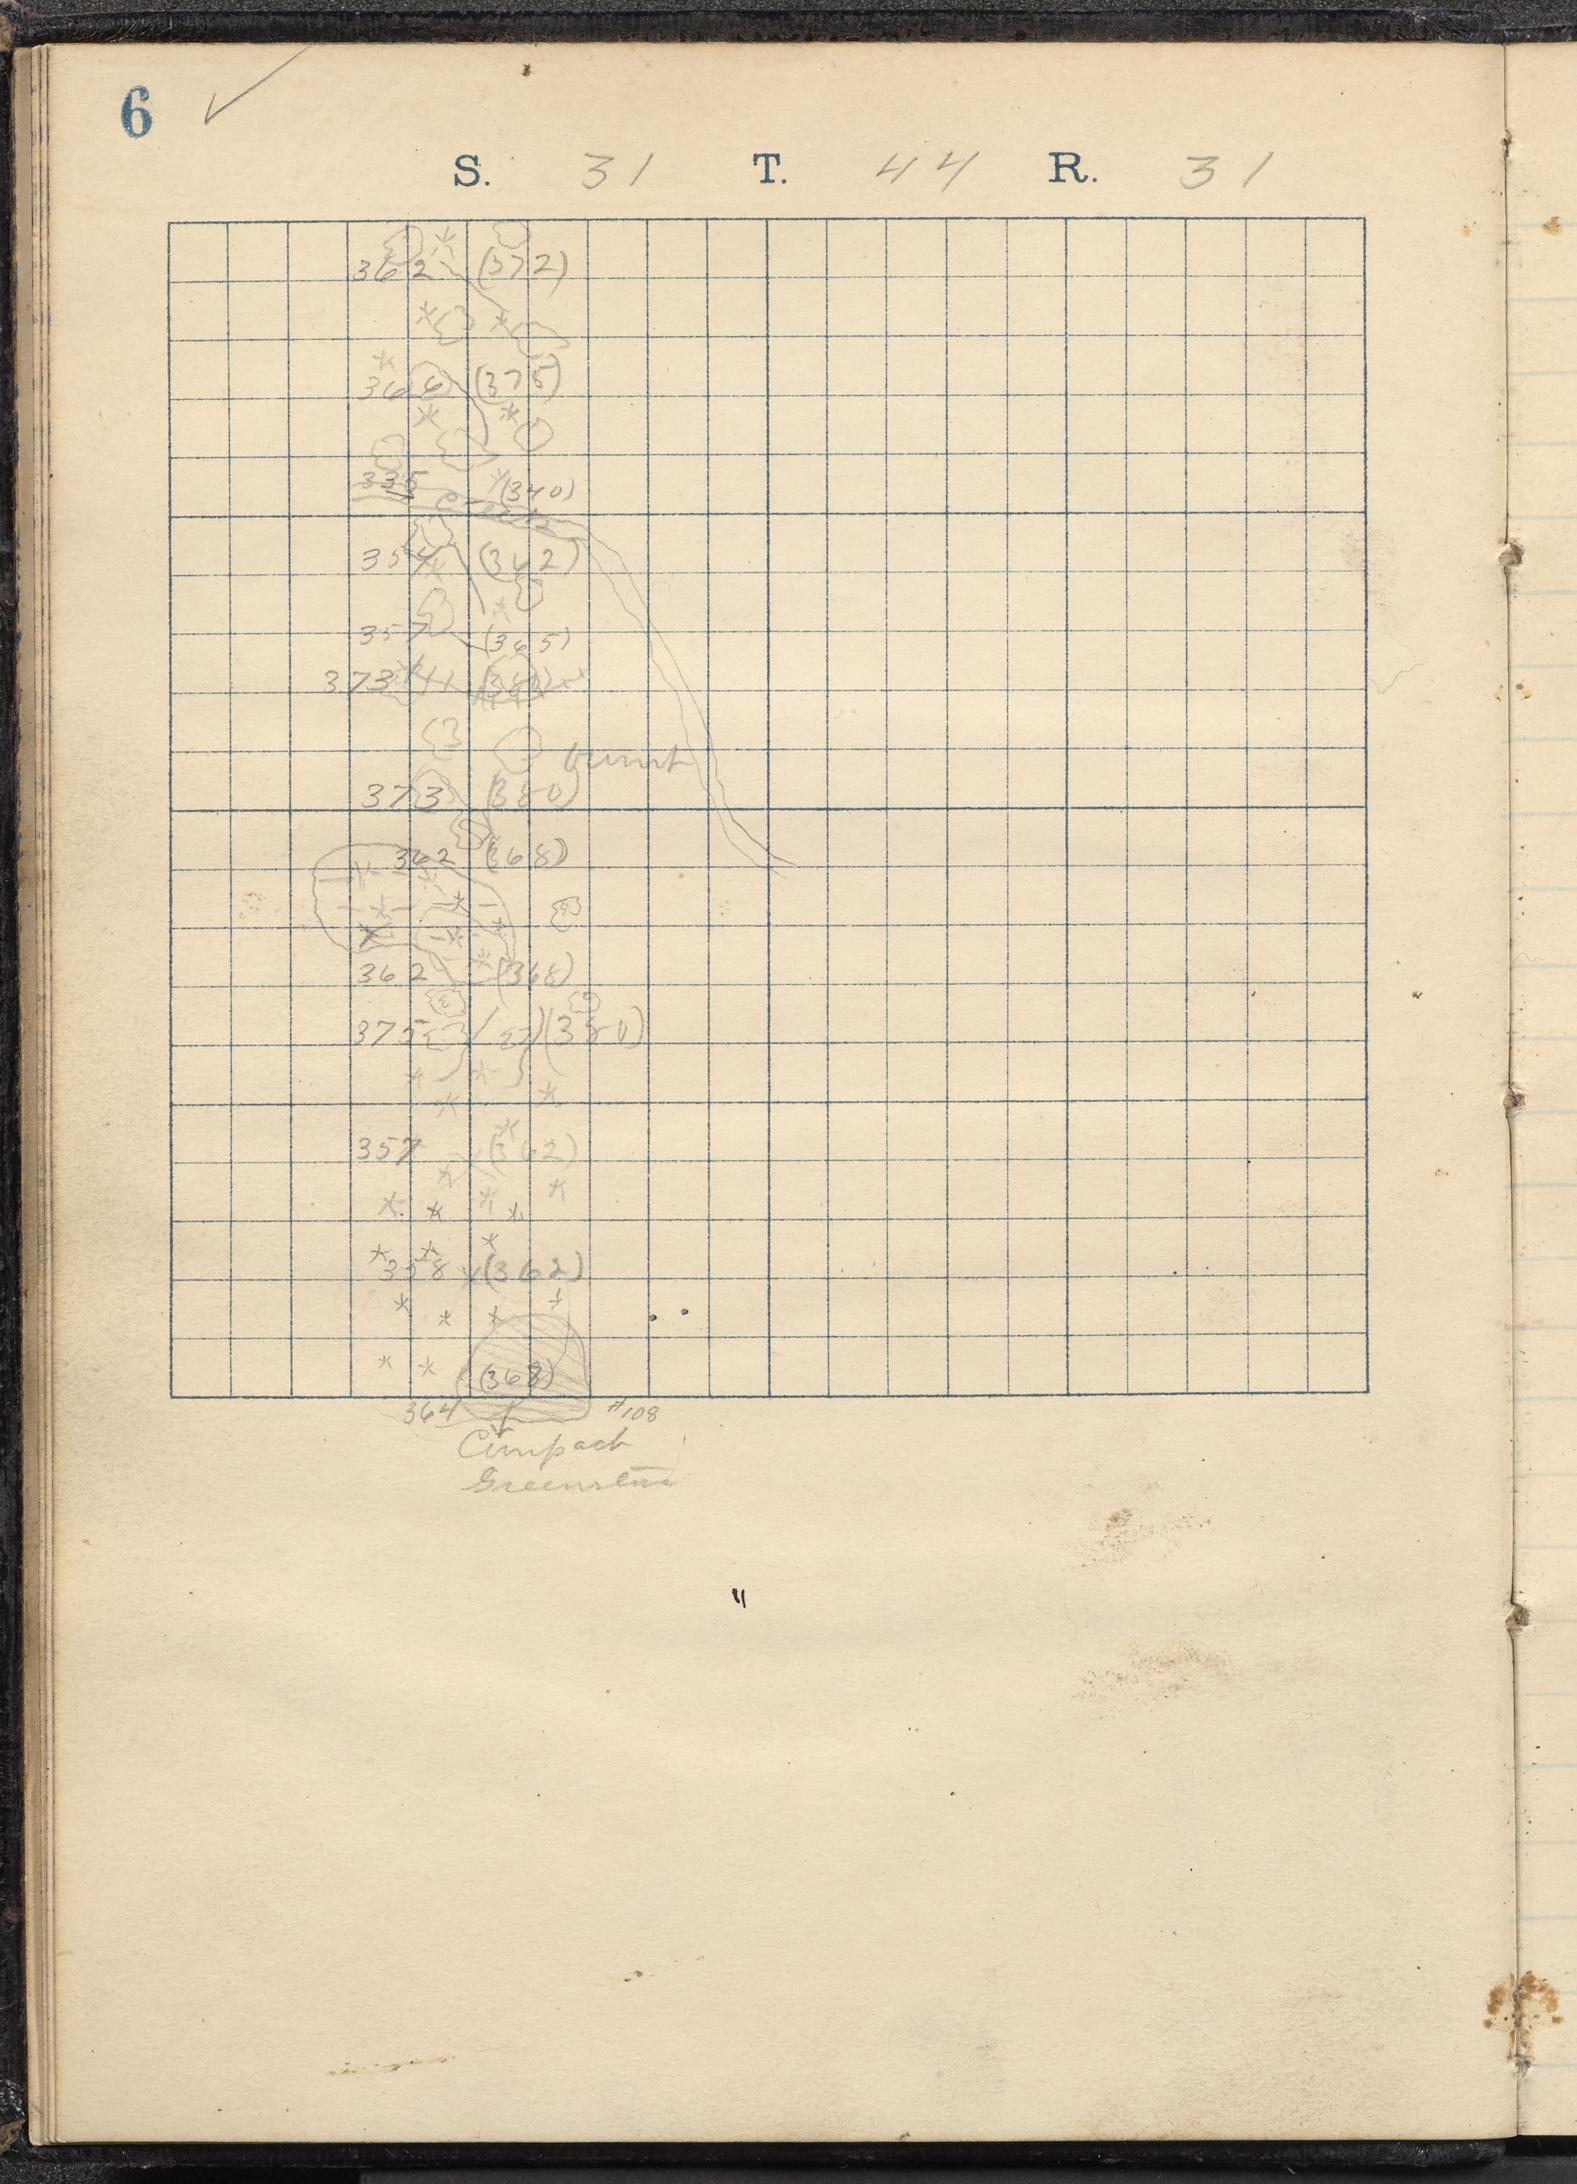 6
S. 31 T. 44 R. 31
362 (372)
366 (375)
335 (340)
creek
354 (362)
357 (365)
373
burnt
373 (380)
362 (368)
362 (368)
375 (380)
357 (362)
358 (362)
(368)
364 #108
Compact
Greenstone